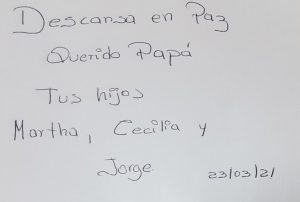 Descansa en Paz
Querido Papá
Tus hijos
Martha, Cecilia y
Jorge 23/03/21